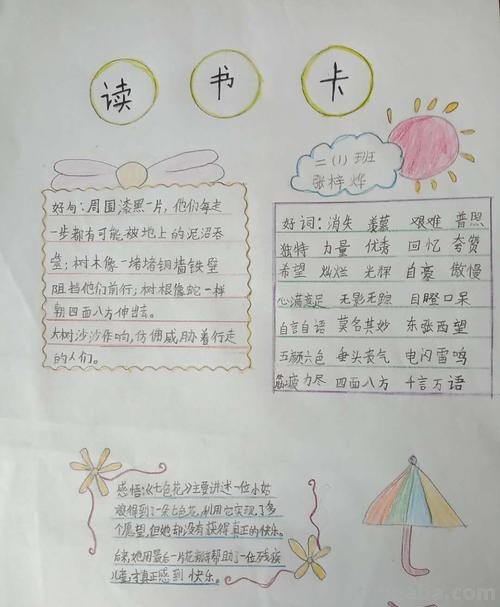 读书卡
二(1)班
张梓烨
好句:周围漆黑一片,他们每走
一步都有可能被地上的泥沼吞
噬;树木像一堵堵铜墙铁壁
阻挡他们前行;树根像蛇一样
朝四面八方伸出去。
大树沙沙作响,仿佛威胁着行走
的人们。
好词:消失 羡慕 艰难 普照
独特 力量 优秀 回忆 夸赞
希望 灿烂 光辉 自豪 傲慢
心满意足 无影无踪 目瞪口呆
自言自语 莫名其妙 东张西望
五颜六色 垂头丧气 电闪雷鸣
筋疲力尽 四面八方 千言万语
感悟:《七色花》主要讲述一位小姑
娘得到了一朵七色花,利用它实现了多
个愿望,但她却没有获得真正的快乐。
后来,她用最后一片花瓣帮助了一位残疾
儿童,才真正感到快乐。